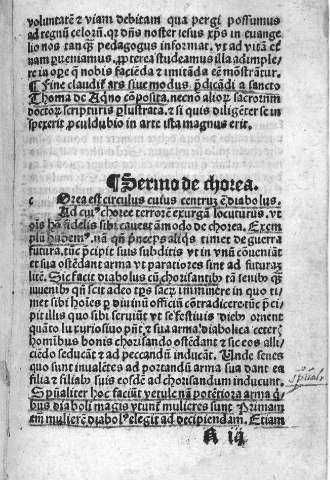 voluntatē & viam debitam qua pergi possumus
ad regnū celorū. qr dn̄s noster iesus xp̄s in euange
lio nos tanq̄ pedagogus informat. vt ad vitā et
nam perueniamus. propterea studeamus illa adimple
re in ope q̄ nobis faciēda & imitāda eē mōstrātur.
¶ Fine claudiť ars siue modus p̄dicādi a sancto
Thoma de Aq̄no cōposita. necnō alior̄ sacrorum
doctor̄ scripturis p̄lustrata. & si quis diligēter se in
spexerit proculdubio in arte ista magnus erit.
¶ Sermo de chorea.
c Orea est circulus cuius centrū ē diabolus.
Ad cuiꝰ choree terrorē exurgā locuturus. vt
oīs hō fidelis sibi caueat a modo de chorea. Exem
plū habemꝰ. nā qn̄ p̄nceps aliqs timet de guerra
futura. tūc p̄cipit suis subditis vt in vnū conueniāt
et sua ostēdant arma vt paratiores sint ad futurā
litē. Sic facit diabolus cū chorisantibꝰ
uuenibꝰ qn̄ scit adeo tp̄s sacr̄ imminere in quo ti
met sibi hoīes p̄ diuinū officiū cōtradicere. tūc p̄ci
pit illis quo sibi seruiūt vt se festiuis diebꝰ ornent
quāto luxuriosiꝰ pn̄t & sua arma diabolica ceterꝭ
hominbus bonis chorisando ostēdant & sic eos alli
ciēdo seducāt & ad peccandū inducāt. Unde senes
quo sunt inualētes ad portandū arma sua dant ea
filiabꝰ suis eosdē ad chorisandum inducunt.
Spūaliter hoc faciūt vetule nam potētiora arma q̄
bus diaboli magis vtunť mulieres sunt Primam
em̄ mulierē diabolꝰ elegit ad decipiendam. Etiam
A iij
spūal